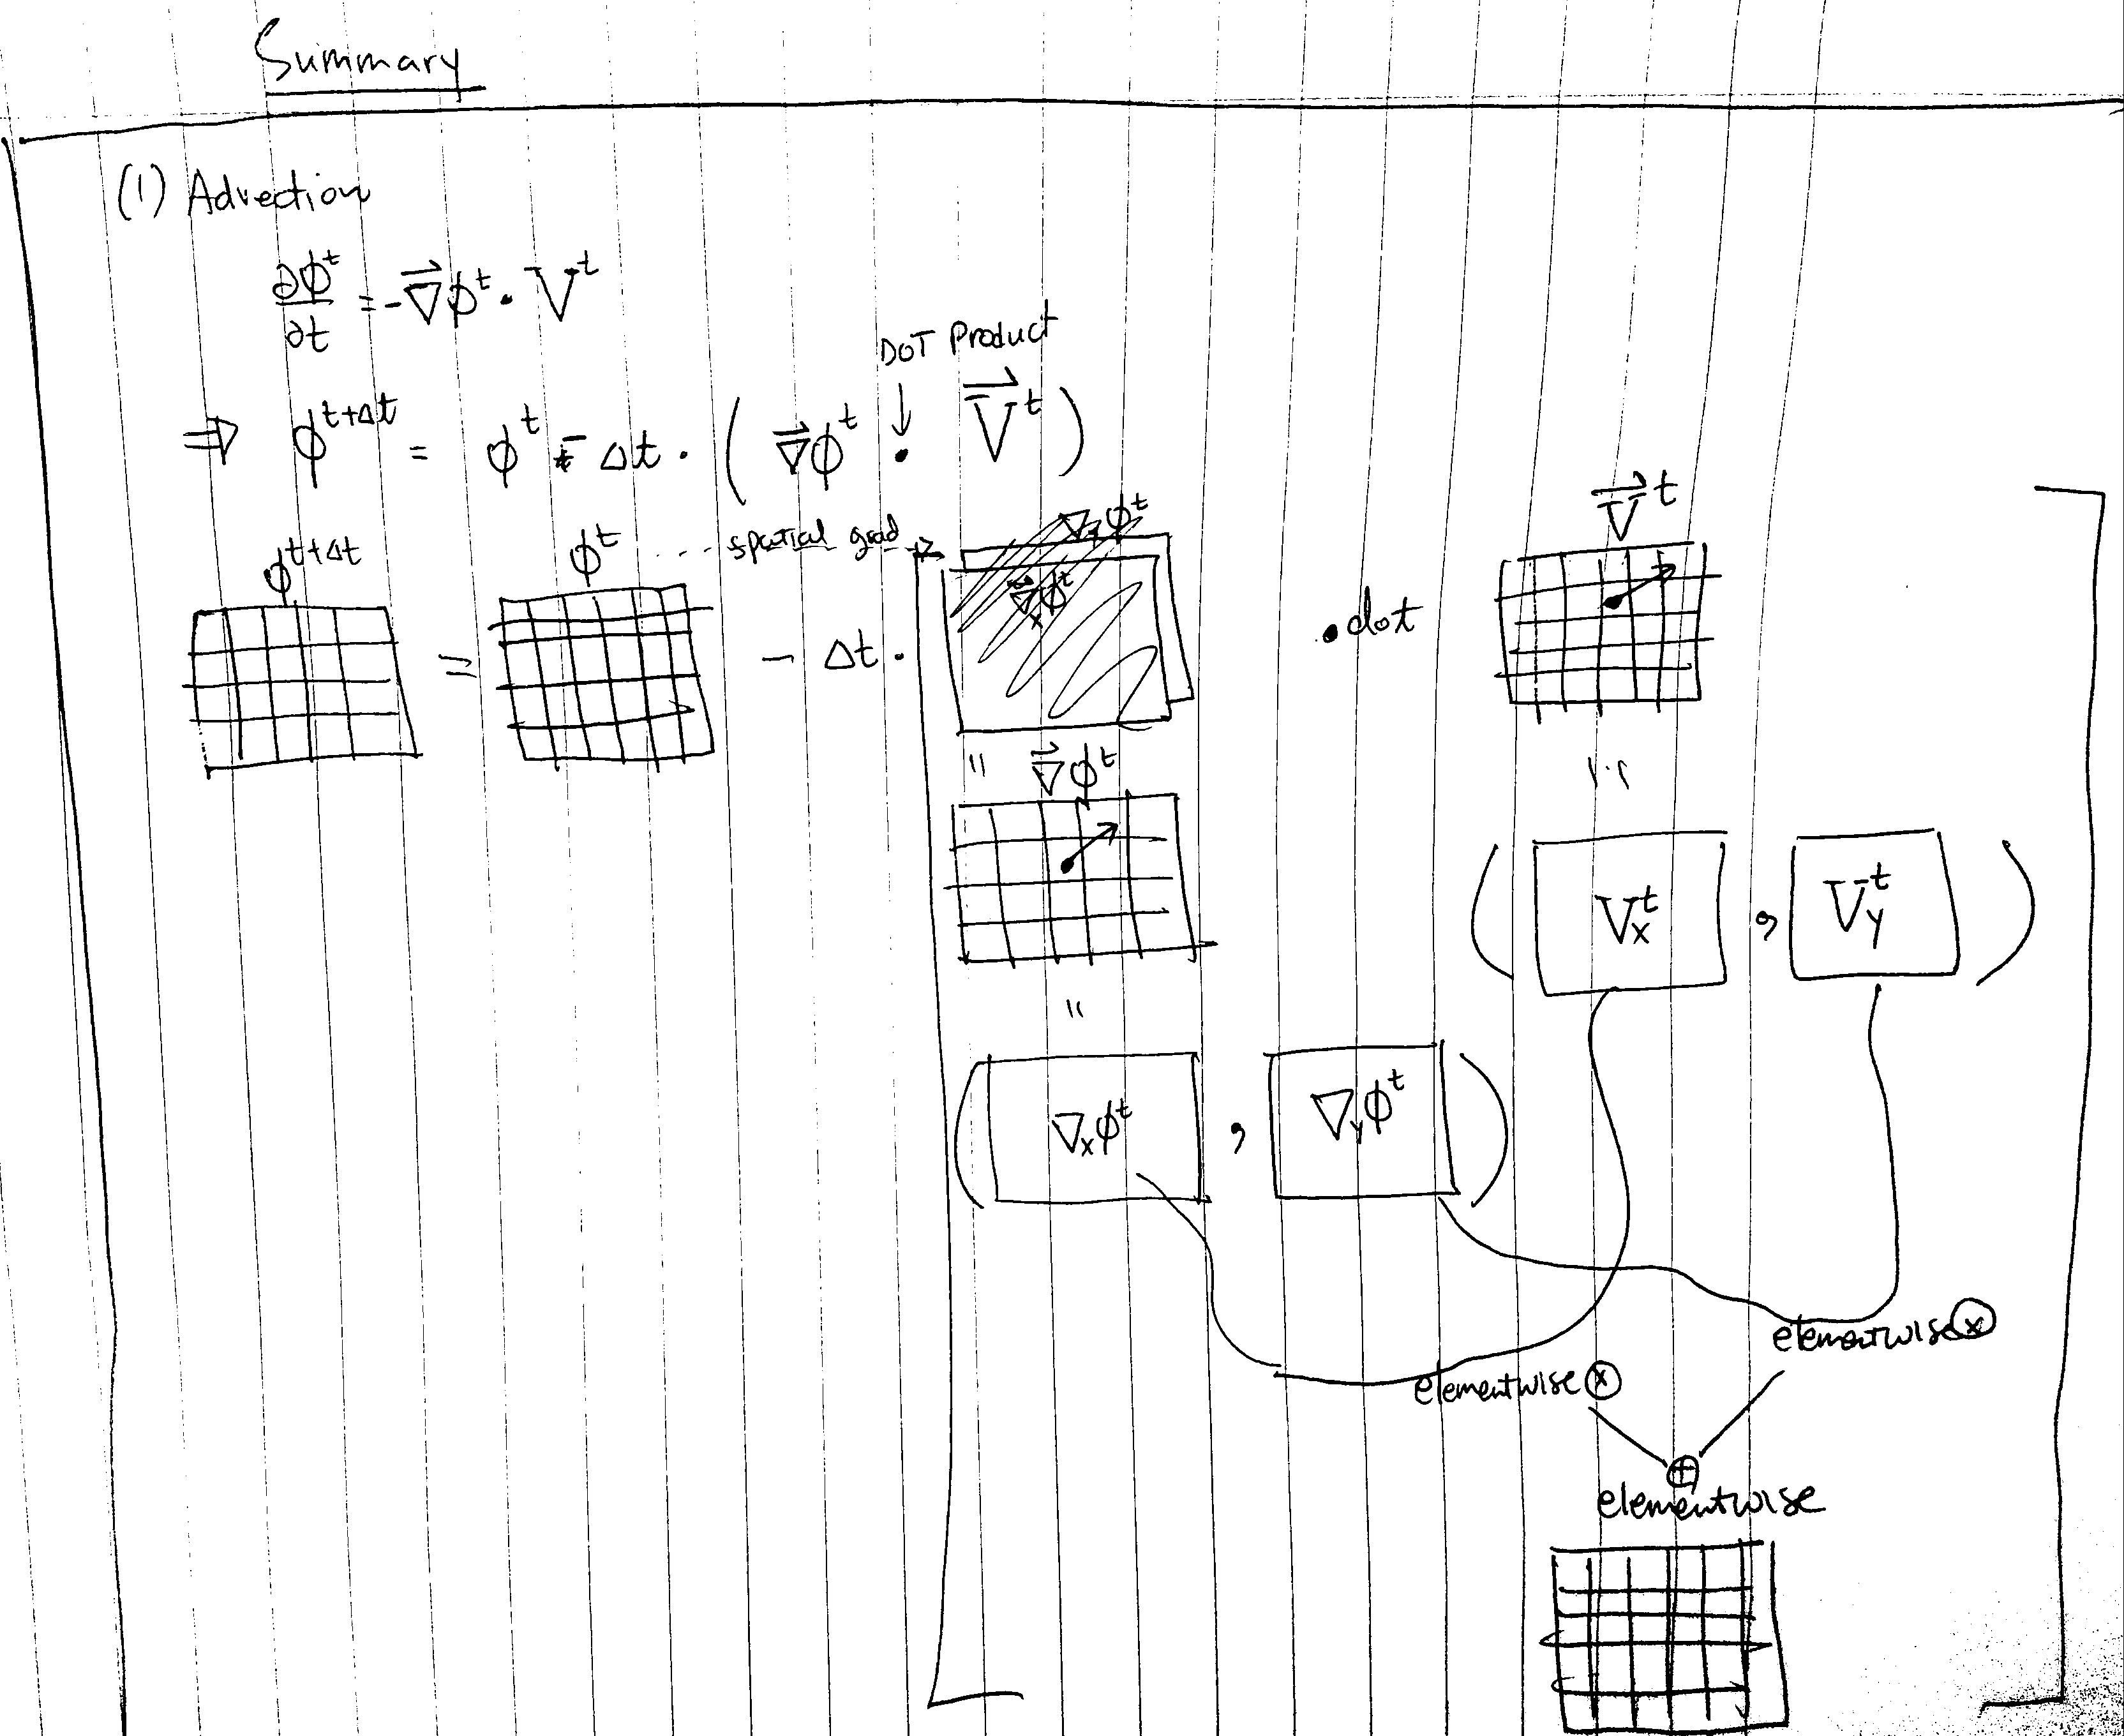 Summary
(1) Advection
∂ϕᵗ/∂t = -∇⃗ϕᵗ · Vᵗ
DOT Product
⇒ ϕᵗ⁺ᐞᵗ = ϕᵗ - Δt · ( ∇⃗ϕᵗ · V⃗ᵗ )
ϕᵗ⁺ᐞᵗ ϕᵗ ... spatial grad → ∇ᵧϕᵗ V⃗ᵗ
∇⃗ₓϕᵗ
= - Δt · · dot
= ∇⃗ϕᵗ =
( Vₓᵗ , Vᵧᵗ )
=
( ∇ₓϕᵗ , ∇ᵧϕᵗ )
elementwise ⊗
elementwise ⊗
⊕
elementwise